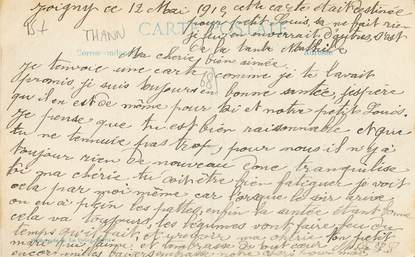 Joigny ce 12 Mai 1915, cette carte était destinée
pour petit Louis, sa ne fait rien
je lui en enverrait d'autres, c'est
De la tante Mathilde
THANN
CARTE POSTALE
Ma chérie bien aimée.
Je t'envoie une carte comme je te l'avait
68
promis je suis toujours en bonne santée, j'espère
qu'il en est de même pour toi et notre petit Louis.
Je pense que tu est bien raisonnable et que
tu ne t'ennuie pas trop, pour nous il n'y a
toujours rien de nouveau donc tranquilise
toi ma chérie tu doit être bien fatiguer je voit
cela par moi même car lorsque le soir arrive
on en a plein les pattes, enfin la santée étant bonne
cela va toujours, les légumes vont faire
temps qu'il fait, ton petit
mari qui t'aime et t'embrasse de tout cœur
encore milles baisers